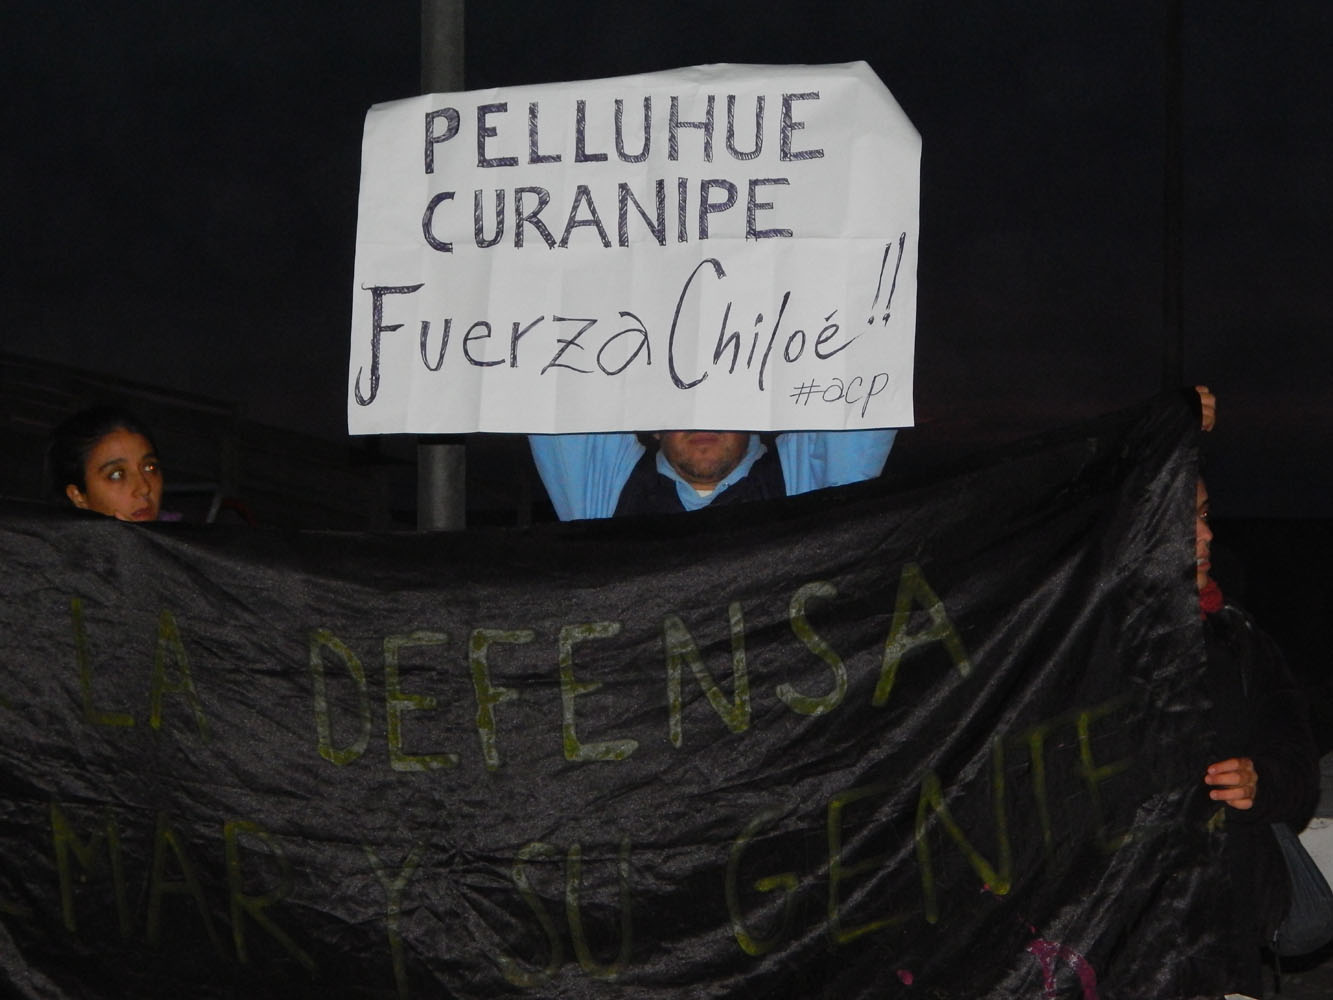 PELLUHUE
CURANIPE
Fuerza Chiloé!!
#acp
LA DEFENSA
MAR Y SU GENTE